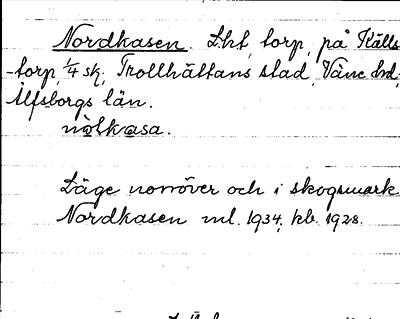 Nordkasen. Lht, torp, på Källs-
torp, 1/4 sk, Trollhättans stad, Väne hd,
Älfsborgs län.
nòlkasa.
Läge norröver och i skogsmark
Nordkasen ml. 1934, kb. 1928.